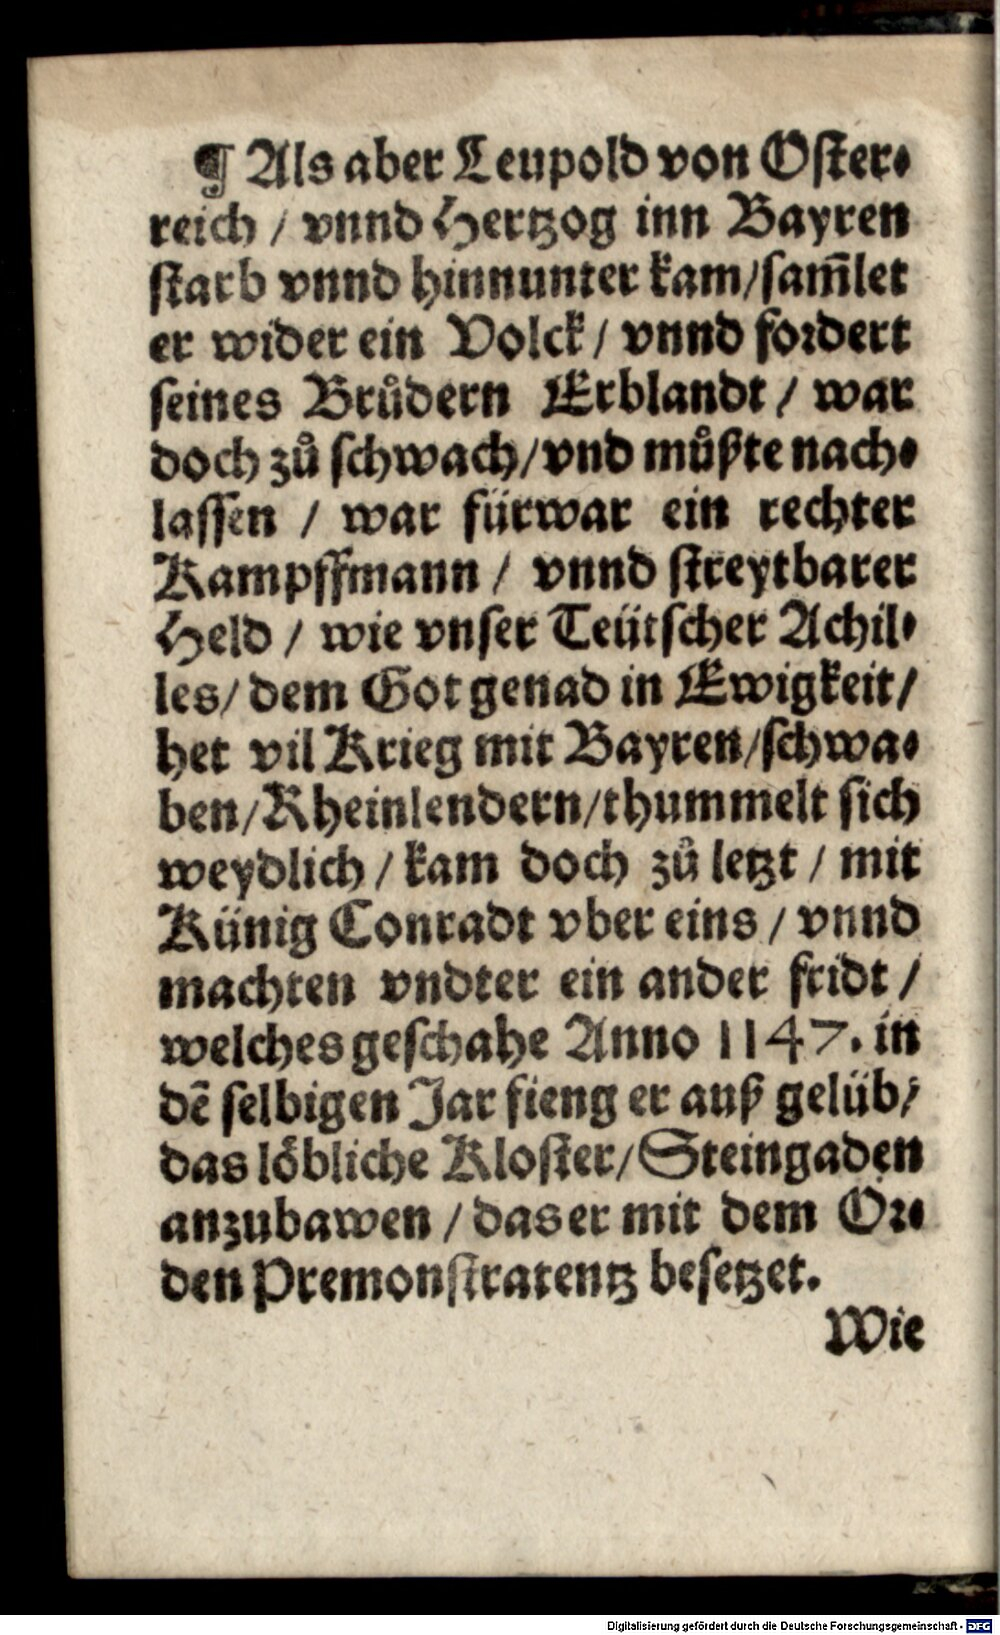 ¶ Als aber Leupold von Oster⸗
reich / vnnd Hertzog inn Bayren
starb vnnd hinnunter kam / sam̃let
er wider ein Volck / vnnd fordert
seines Bruͤdern Erblandt / war
doch zuͦ schwach / vnd muͤßte nach⸗
lassen / war fürwar ein rechter
Kampffmann / vnnd streytbarer
Held / wie vnser Teütscher Achil⸗
les / dem Got genad in Ewigkeit /
het vil Krieg mit Bayren / schwa⸗
ben / Rheinlendern / thummelt sich
weydlich / kam doch zuͦ letzt / mit
Künig Conradt vber eins / vnnd
machten vndter ein ander fridt /
welches geschahe Anno 1147. in
dẽ selbigen Jar fieng er auß gelüb /
das loͤbliche Kloster / Steingaden
anzubawen / das er mit dem Or⸗
den Premonstratentz besetzet.
Wie
Digitalisierung gefördert durch die Deutsche Forschungsgemeinschaft - DFG